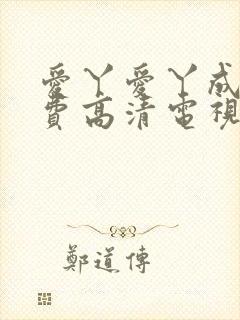 愛丫愛丫成
費高清電視
鄭道傳